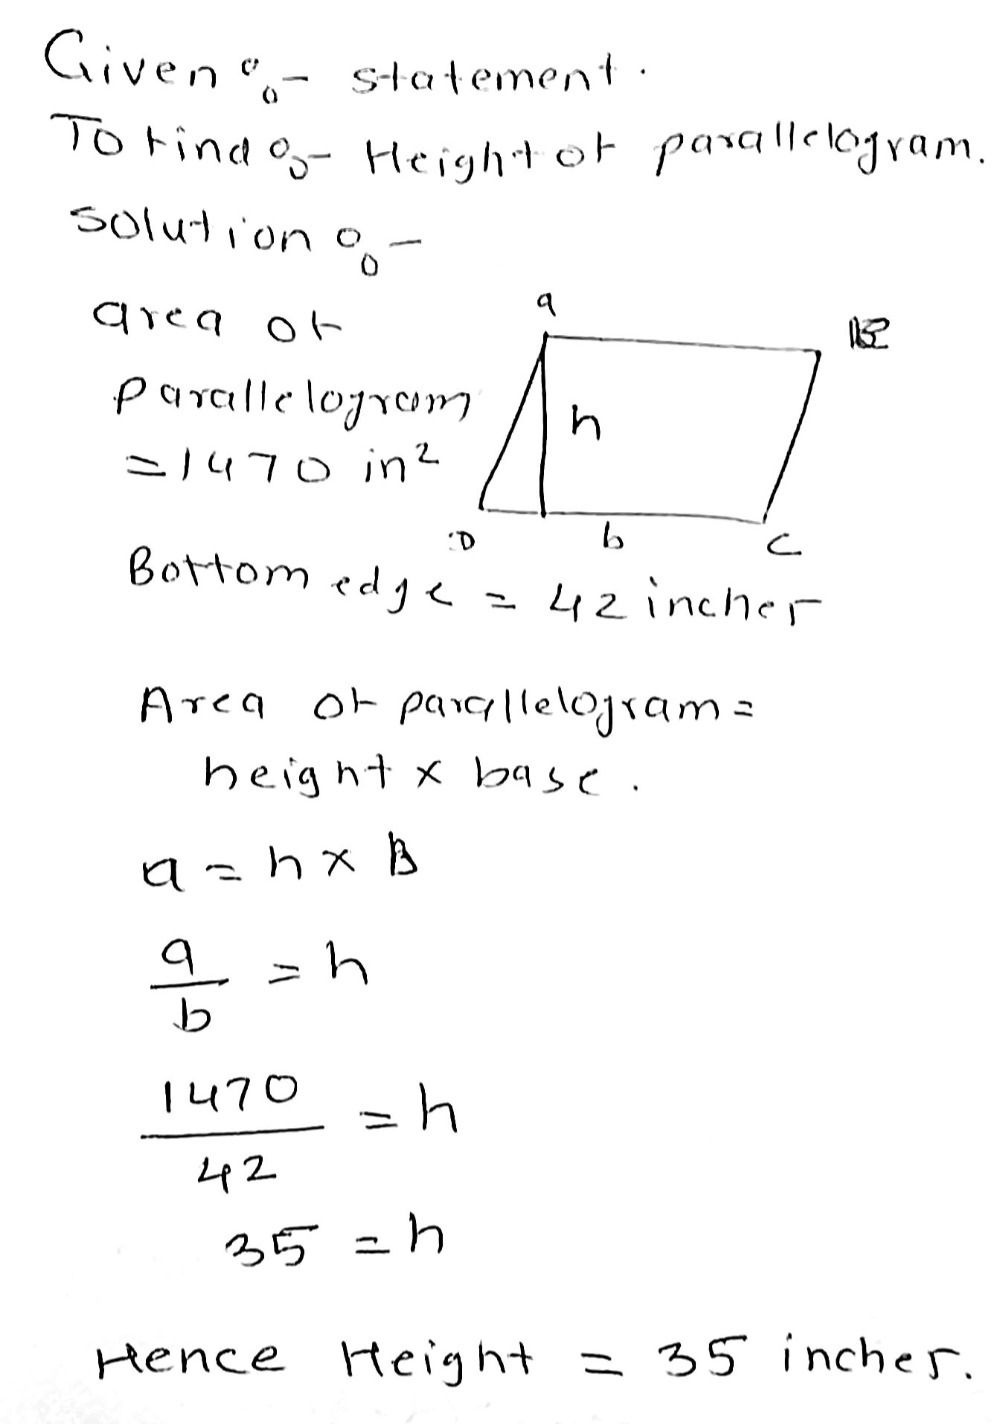 Given :- statement.
To find :- Height of parallelogram.
solution :-
area of
parallelogram
=1470 in²
a
h
D b C
Bottom edge = 42 inches
Area of parallelogram =
height x base.
a = h x B
a/b = h
1470/42 = h
35 = h
Hence Height = 35 inches.